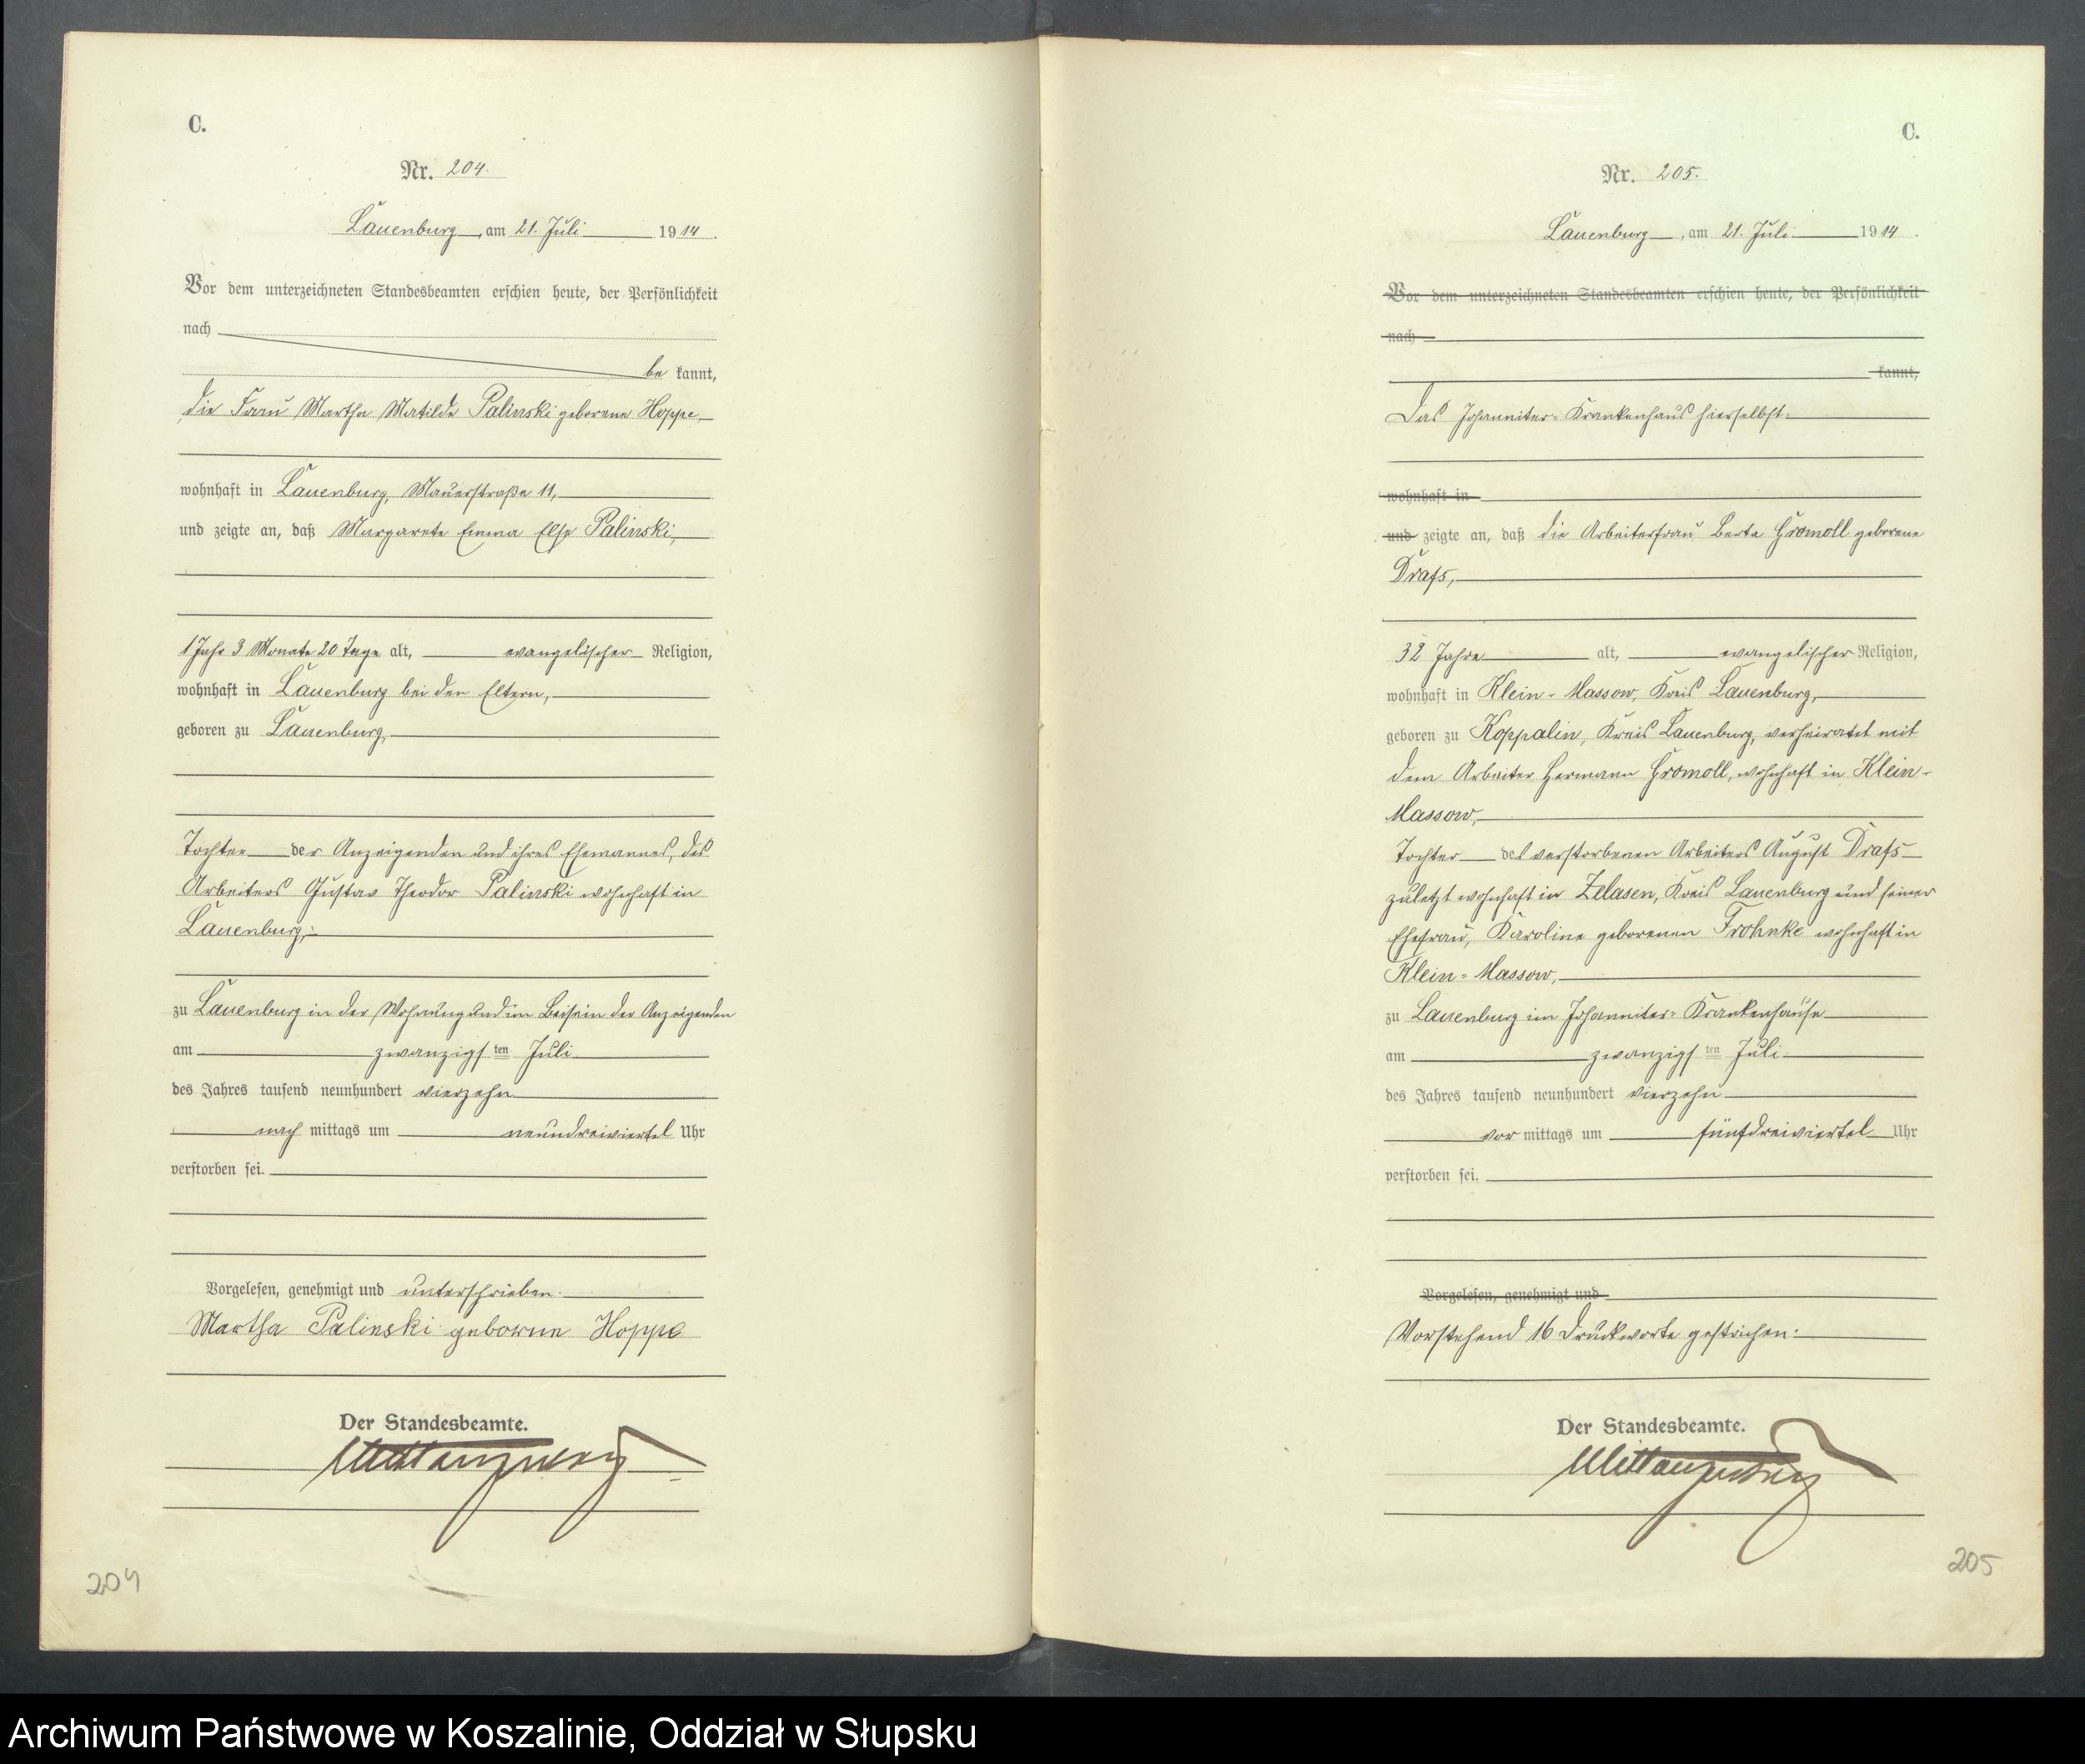 C.
Nr. 204.
Lauenburg, am 21. Juli 1914.
Vor dem unterzeichneten Standesbeamten erschien heute, der Persönlichkeit
nach
be kannt,
die Frau Martha Matilde Palinski geborene Hoppe,
wohnhaft in Lauenburg, Mauerstraße 11,
und zeigte an, daß Margarete Emma Else Palinski,
1 Jahr 3 Monate 20 Tage alt, evangelischer Religion,
wohnhaft in Lauenburg bei den Eltern,
geboren zu Lauenburg,
Tochter der Anzeigenden und ihres Ehemannes, des
Arbeiters Gustav Theodor Palinski wohnhaft in
Lauenburg,
zu Lauenburg in der Wohnung und im Beisein der Anzeigenden
am zwanzigsten Juli
des Jahres tausend neunhundert vierzehn
nach mittags um neundreiviertel Uhr
verstorben sei.
Vorgelesen, genehmigt und unterschrieben.
Martha Palinski geborene Hoppe
Der Standesbeamte.
204
C.
Nr. 205.
Lauenburg, am 21. Juli 1914.
Vor dem unterzeichneten Standesbeamten erschien heute, der Persönlichkeit
nach
kannt,
Das Johanniter-Krankenhaus hierselbst
wohnhaft in
und zeigte an, daß die Arbeiterfrau Berta Gromoll geborene
Drafs,
32 Jahre alt, evangelischer Religion,
wohnhaft in Klein-Massow, Kreis Lauenburg,
geboren zu Koppalin, Kreis Lauenburg, verheiratet mit
dem Arbeiter Hermann Gromoll, wohnhaft in Klein-
Massow,
Tochter des verstorbenen Arbeiters August Drafs
zuletzt wohnhaft in Zelasen, Kreis Lauenburg und seiner
Ehefrau, Karoline geborenen Frohnke wohnhaft in
Klein-Massow,
zu Lauenburg im Johanniter-Krankenhause
am zwanzigsten Juli
des Jahres tausend neunhundert vierzehn
vor mittags um fünfdreiviertel Uhr
verstorben sei.
Vorgelesen, genehmigt und
Vorstehend 16 Druckworte gestrichen.
Der Standesbeamte.
205
Archiwum Państwowe w Koszalinie, Oddział w Słupsku